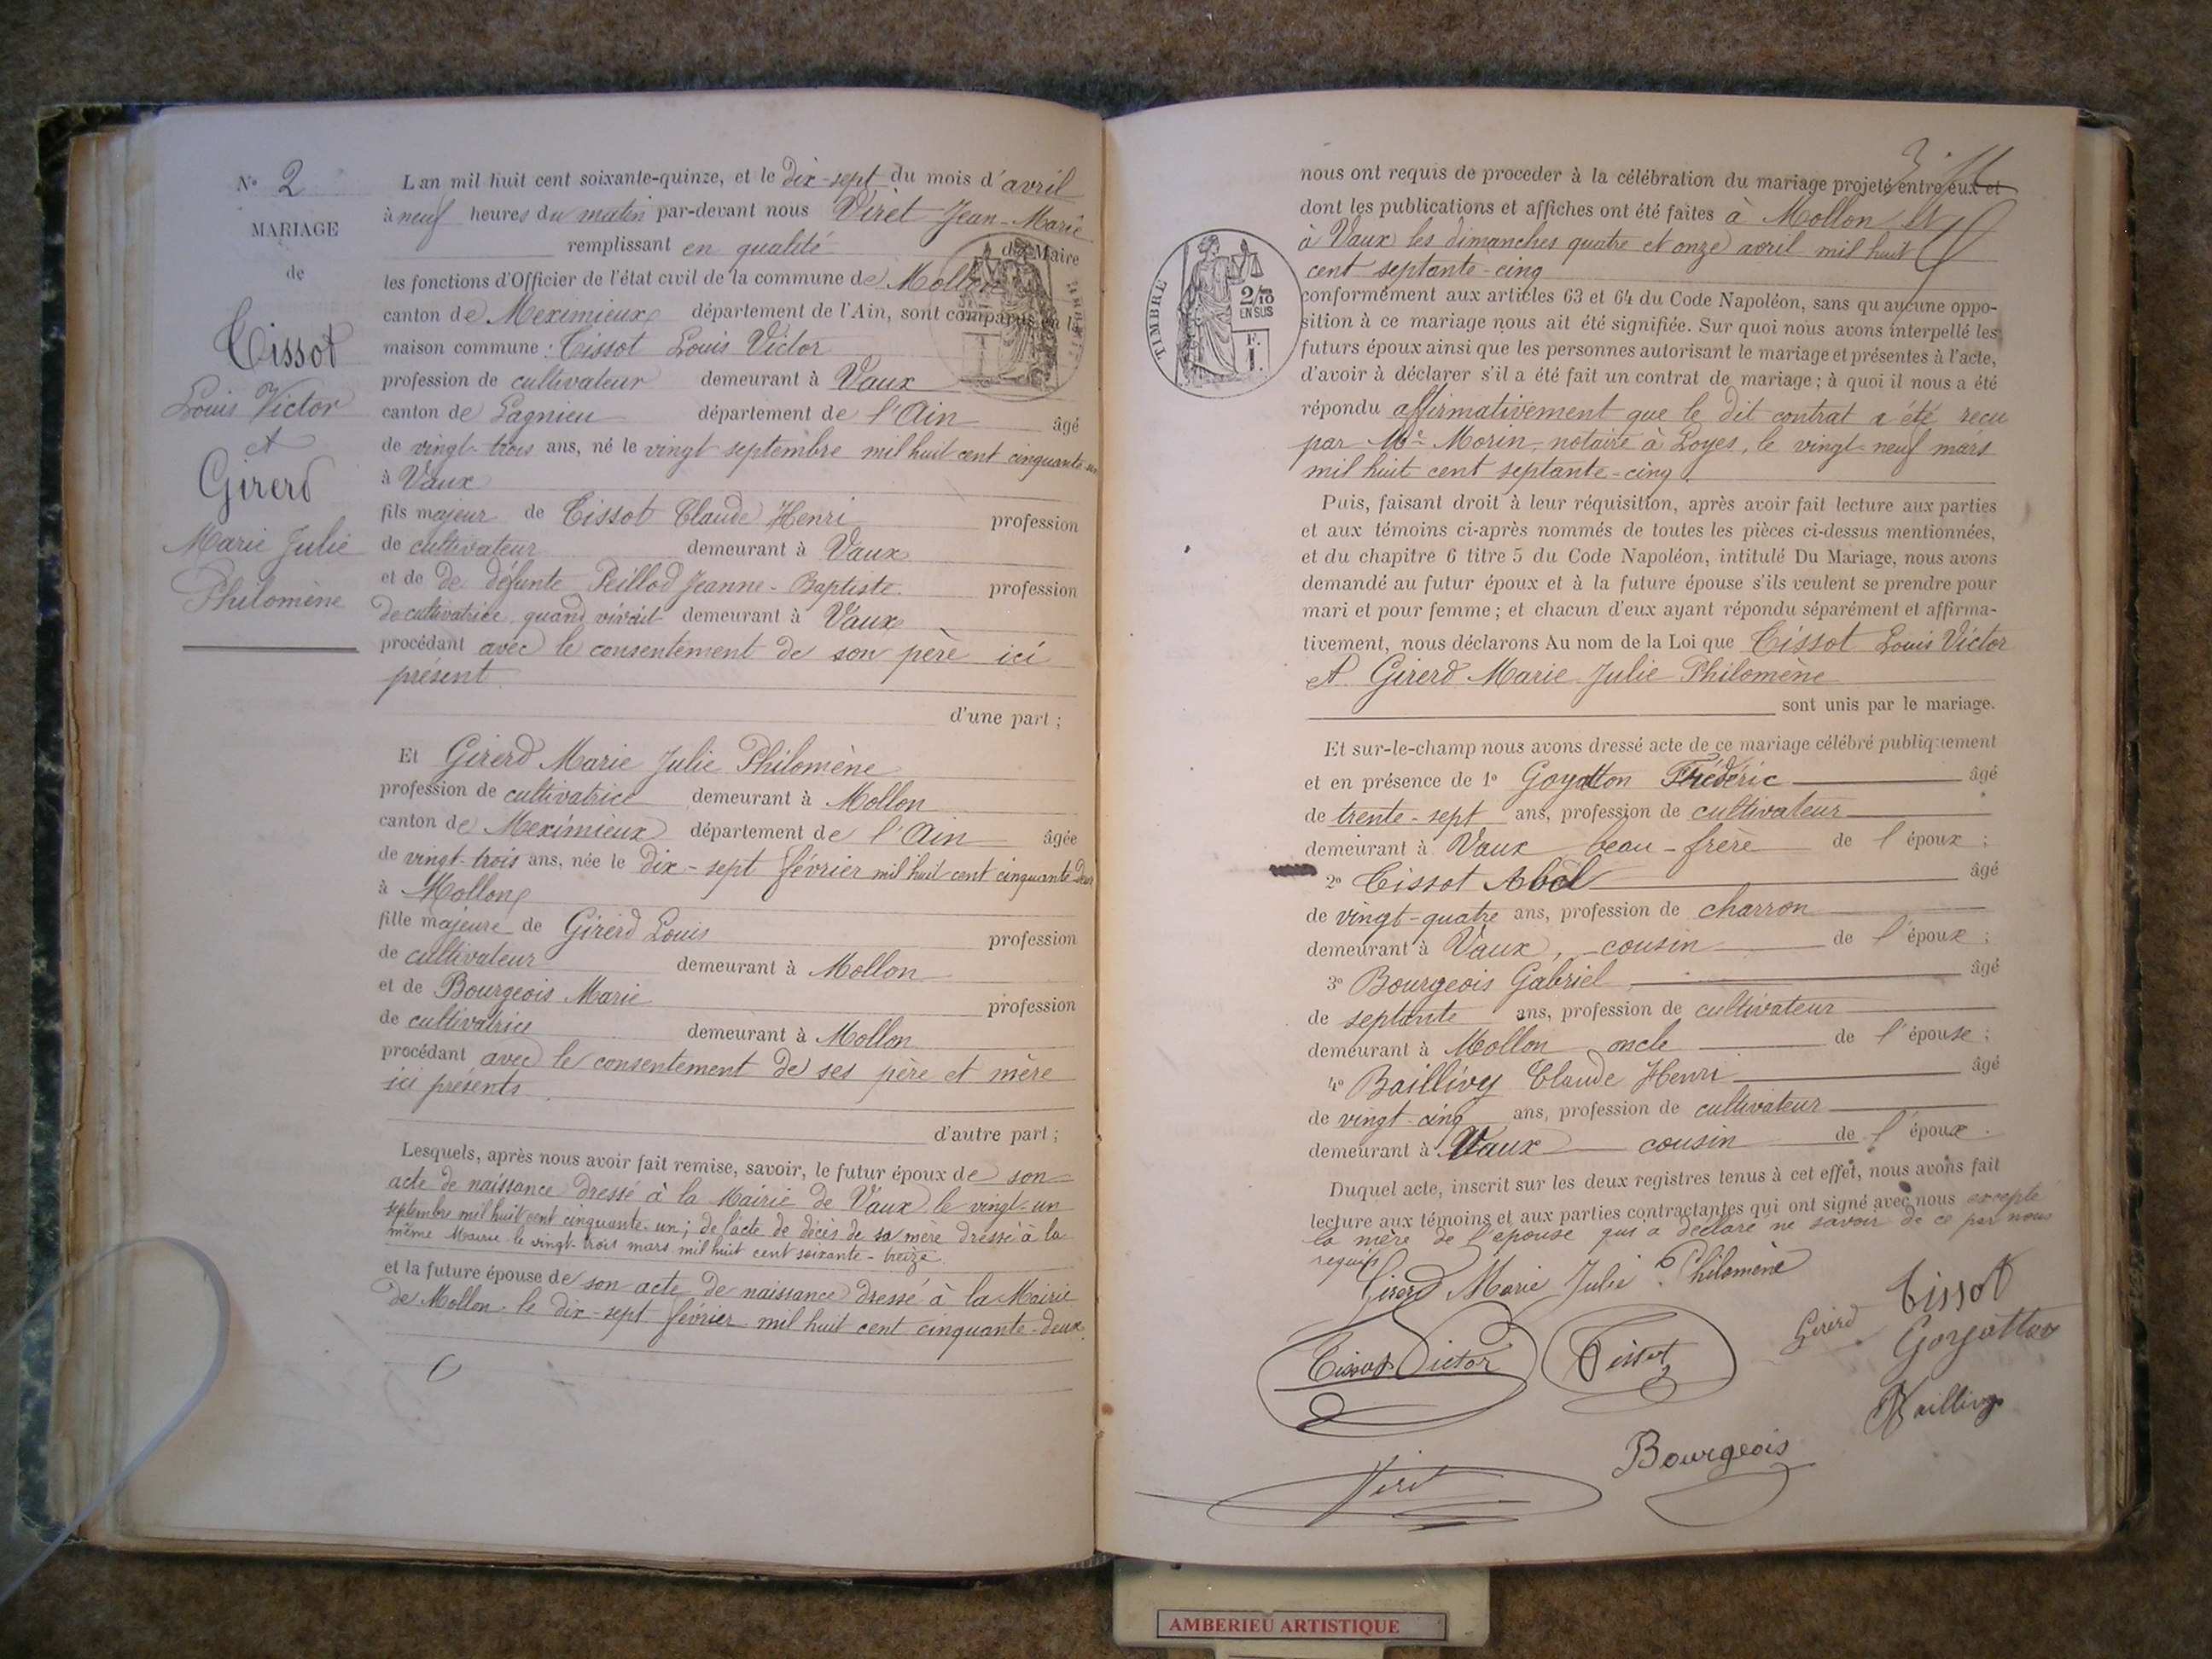 N° 2
MARIAGE
de
Tissot
Louis Victor
et
Girerd
Marie Julie
Philomène
L'an mil huit cent soixante-quinze, et le dix-sept du mois d'avril
à neuf heures du matin par-devant nous Viret Jean-Marie
remplissant en qualité de Maire
les fonctions d'Officier de l'état civil de la commune de Mollon
canton de Meximieux département de l'Ain, sont comparus en la
maison commune : Tissot Louis Victor
profession de cultivateur demeurant à Vaux
canton de Lagnieu département de l'Ain âgé
de vingt-trois ans, né le vingt septembre mil huit cent cinquante-un
à Vaux
fils majeur de Tissot Claude Henri profession
de cultivateur demeurant à Vaux
et de de défunte Peillod Jeanne-Baptiste profession
de cultivatrice quand vivait demeurant à Vaux
procédant avec le consentement de son père ici
présent
d'une part ;
Et Girerd Marie Julie Philomène
profession de cultivatrice demeurant à Mollon
canton de Meximieux département de l'Ain âgée
de vingt-trois ans, née le dix-sept février mil huit cent cinquante-deux
à Mollon
fille majeure de Girerd Louis profession
de cultivateur demeurant à Mollon
et de Bourgeois Marie profession
de cultivatrice demeurant à Mollon
procédant avec le consentement de ses père et mère
ici présents
d'autre part ;
Lesquels, après nous avoir fait remise, savoir, le futur époux de son
acte de naissance dressé à la Mairie de Vaux le vingt-un
septembre mil huit cent cinquante-un ; de l'acte de décès de sa mère dressé à la
même Mairie le vingt-trois mars mil huit cent soixante-treize
et la future épouse de son acte de naissance dressé à la Mairie
de Mollon le dix-sept février mil huit cent cinquante-deux.
nous ont requis de proceder à la célébration du mariage projeté entre eux et
dont les publications et affiches ont été faites à Mollon et
à Vaux les dimanches quatre et onze avril mil huit
cent septante-cinq
TIMBRE
2/10
EN SUS
F.
1.
conformément aux articles 63 et 64 du Code Napoléon, sans qu'aucune oppo-
sition à ce mariage nous ait été signifiée. Sur quoi nous avons interpellé les
futurs époux ainsi que les personnes autorisant le mariage et présentes à l'acte,
d'avoir à déclarer s'il a été fait un contrat de mariage ; à quoi il nous a été
répondu affirmativement que le dit contrat a été recu
par Me Morin, notaire à Loyes, le vingt-neuf mars
mil huit cent septante-cinq.
Puis, faisant droit à leur réquisition, après avoir fait lecture aux parties
et aux témoins ci-après nommés de toutes les pièces ci-dessus mentionnées,
et du chapitre 6 titre 5 du Code Napoléon, intitulé Du Mariage, nous avons
demandé au futur époux et à la future épouse s'ils veulent se prendre pour
mari et pour femme ; et chacun d'eux ayant répondu séparément et affirma-
tivement, nous déclarons Au nom de la Loi que Tissot Louis Victor
et Girerd Marie Julie Philomène
sont unis par le mariage.
Et sur-le-champ nous avons dressé acte de ce mariage célébré publiquement
et en présence de 1° Goyatton Frédéric âgé
de trente-sept ans, profession de cultivateur
demeurant à Vaux beau-frère de l'époux ;
2° Tissot Abel âgé
de vingt-quatre ans, profession de charron
demeurant à Vaux, cousin de l'époux ;
3° Bourgeois Gabriel âgé
de septante ans, profession de cultivateur
demeurant à Mollon oncle de l'épouse ;
4° Baillivy Claude Henri âgé
de vingt-cinq ans, profession de cultivateur
demeurant à Vaux cousin de l'époux.
Duquel acte, inscrit sur les deux registres tenus à cet effet, nous avons fait
lecture aux témoins et aux parties contractantes qui ont signé avec nous excepté
la mère de l'épouse qui a déclaré ne savoir de ce par nous
requis
Girerd Marie Julie Philomène
Tissot
Girerd
Goyatton
Tissot Victor
Tissot
Baillivy
Bourgeois
Viret
AMBERIEU ARTISTIQUE